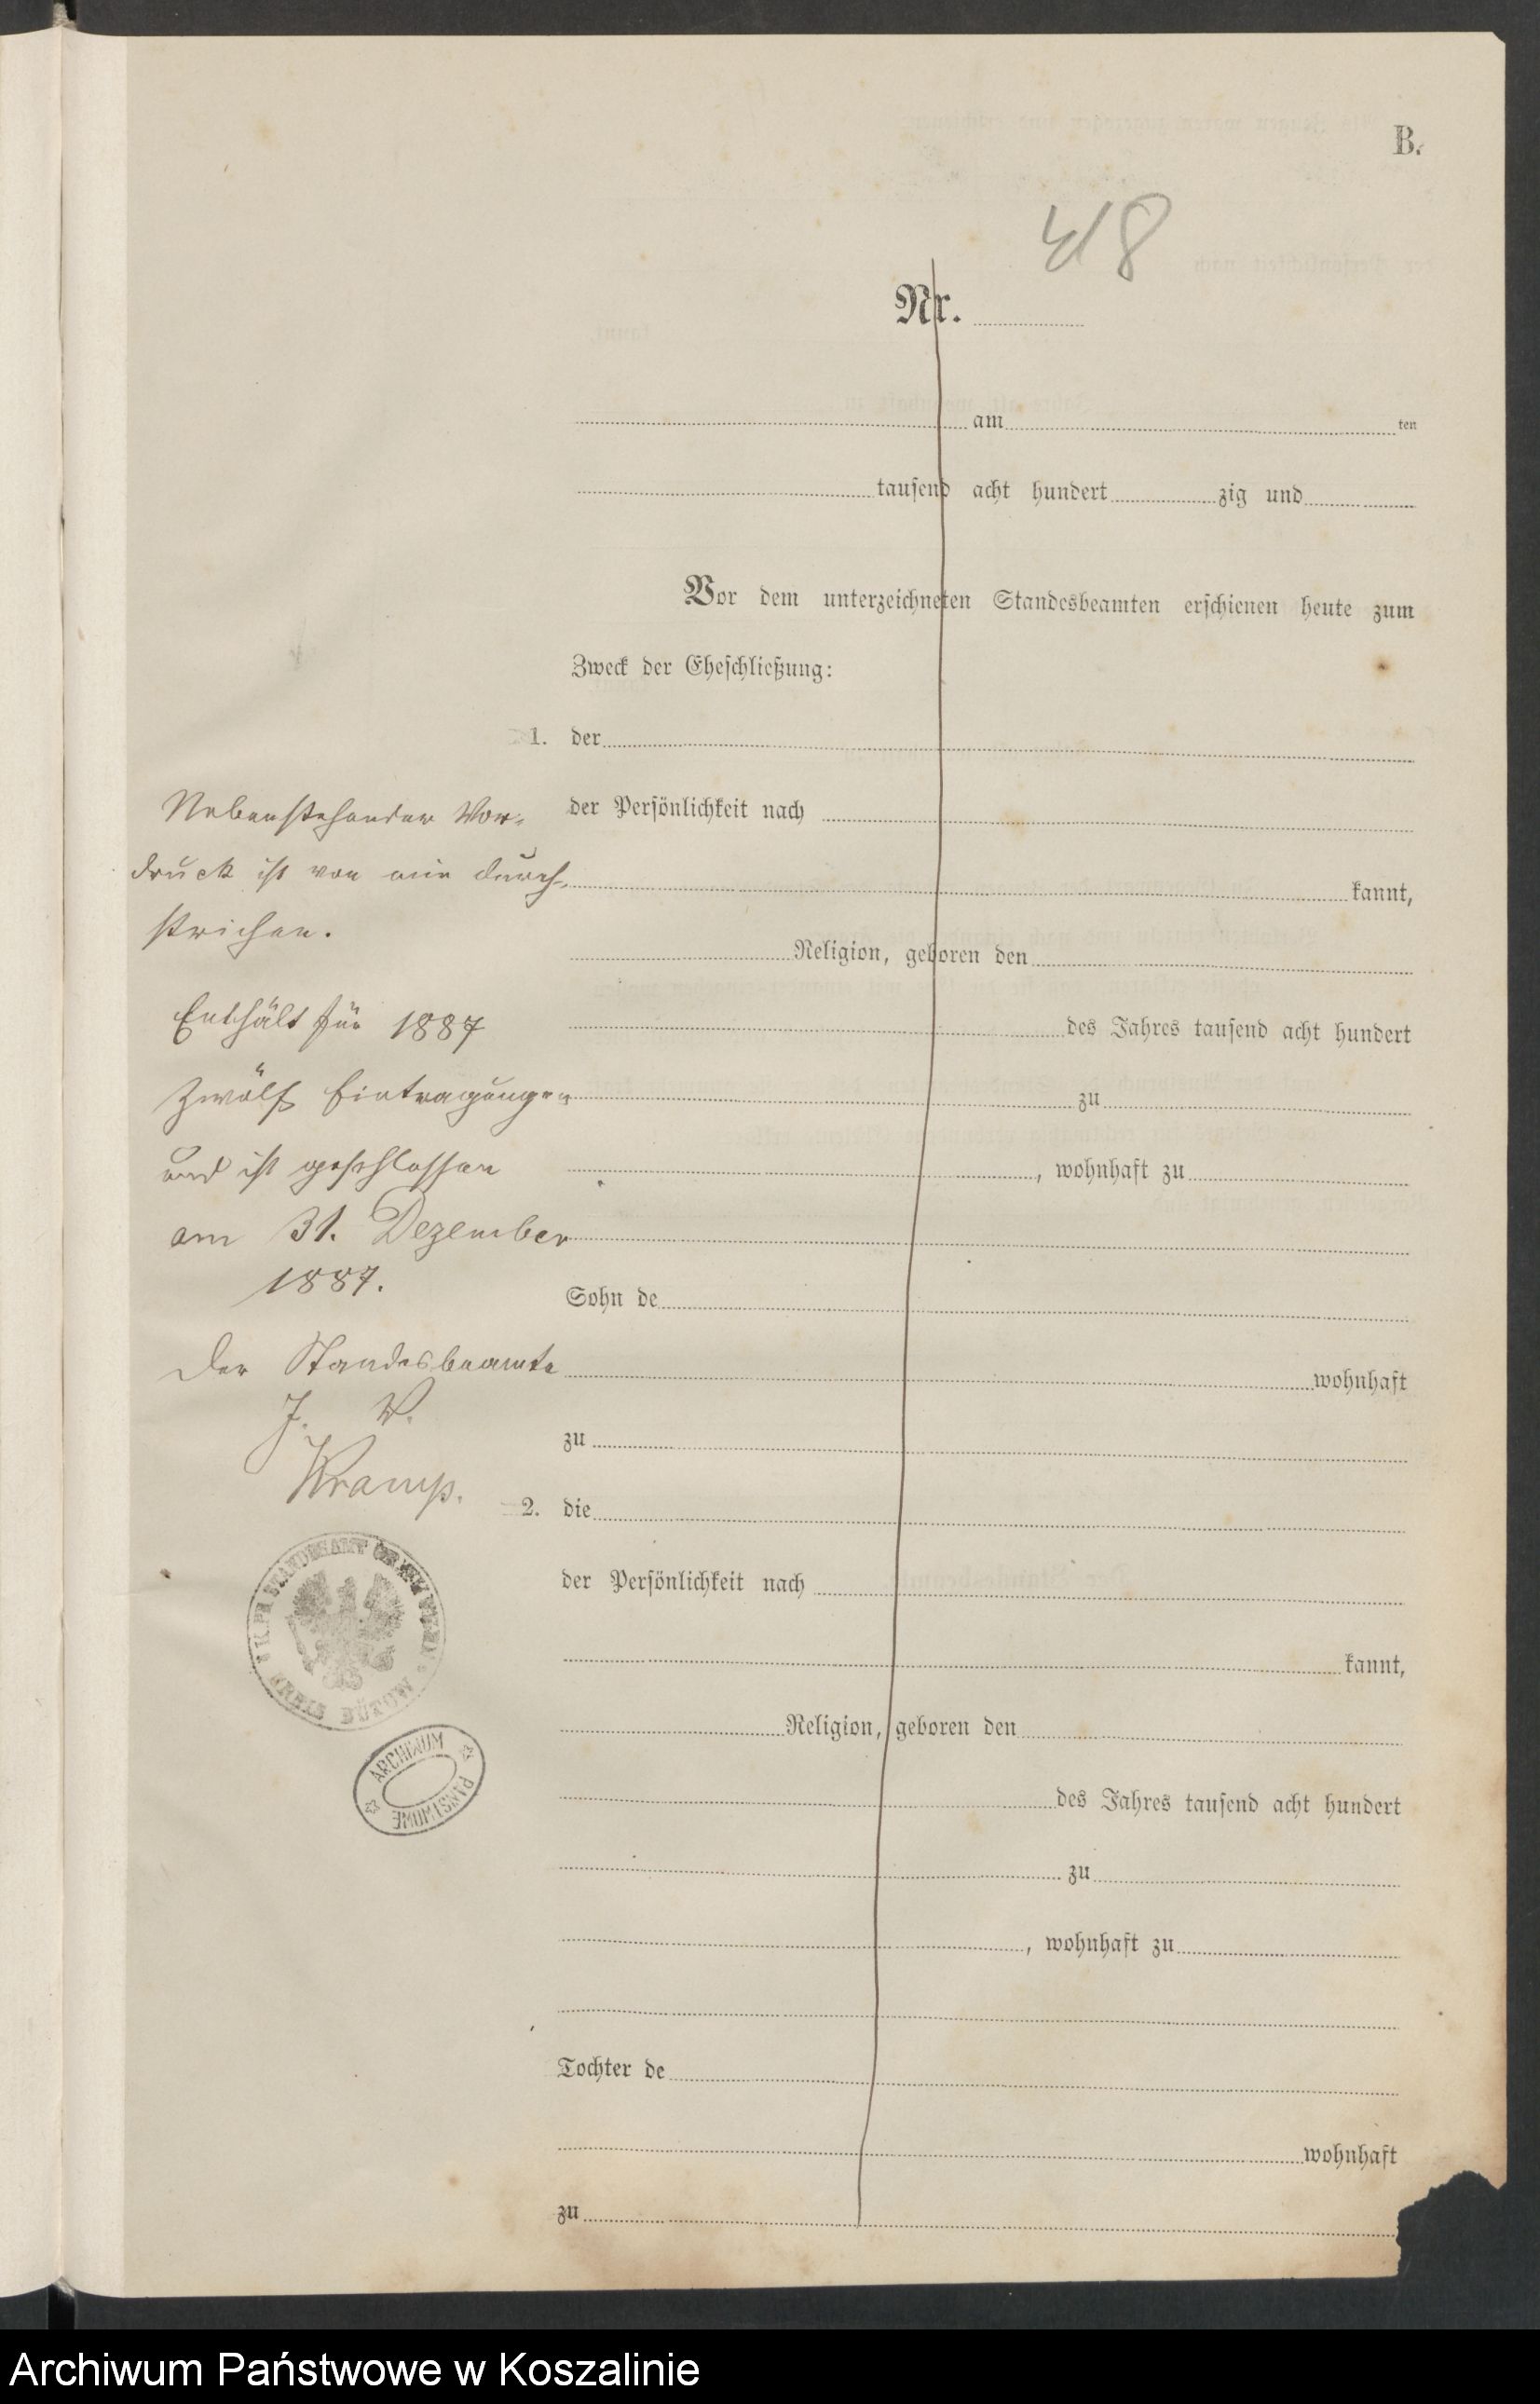 B.
418
Nr.
am ten
tausend acht hundert zig und
Vor dem unterzeichneten Standesbeamten erschienen heute zum
Zweck der Eheschließung:
1. der
der Persönlichkeit nach
kannt,
Religion, geboren den
des Jahres tausend acht hundert
zu
, wohnhaft zu
Sohn de
wohnhaft
zu
2. die
der Persönlichkeit nach
kannt,
Religion, geboren den
des Jahres tausend acht hundert
zu
, wohnhaft zu
Tochter de
wohnhaft
zu
Nebenstehender Vor-
druck ist von mir durch-
strichen.
Enthält für 1887
zwölf Eintragungen
und ist geschlossen
am 31. Dezember
1887.
Der Standesbeamte
J. V.
Kramp.
STANDESAMT
KREIS BÜTOW
ARCHIWUM
PAŃSTWOWE
Archiwum Państwowe w Koszalinie